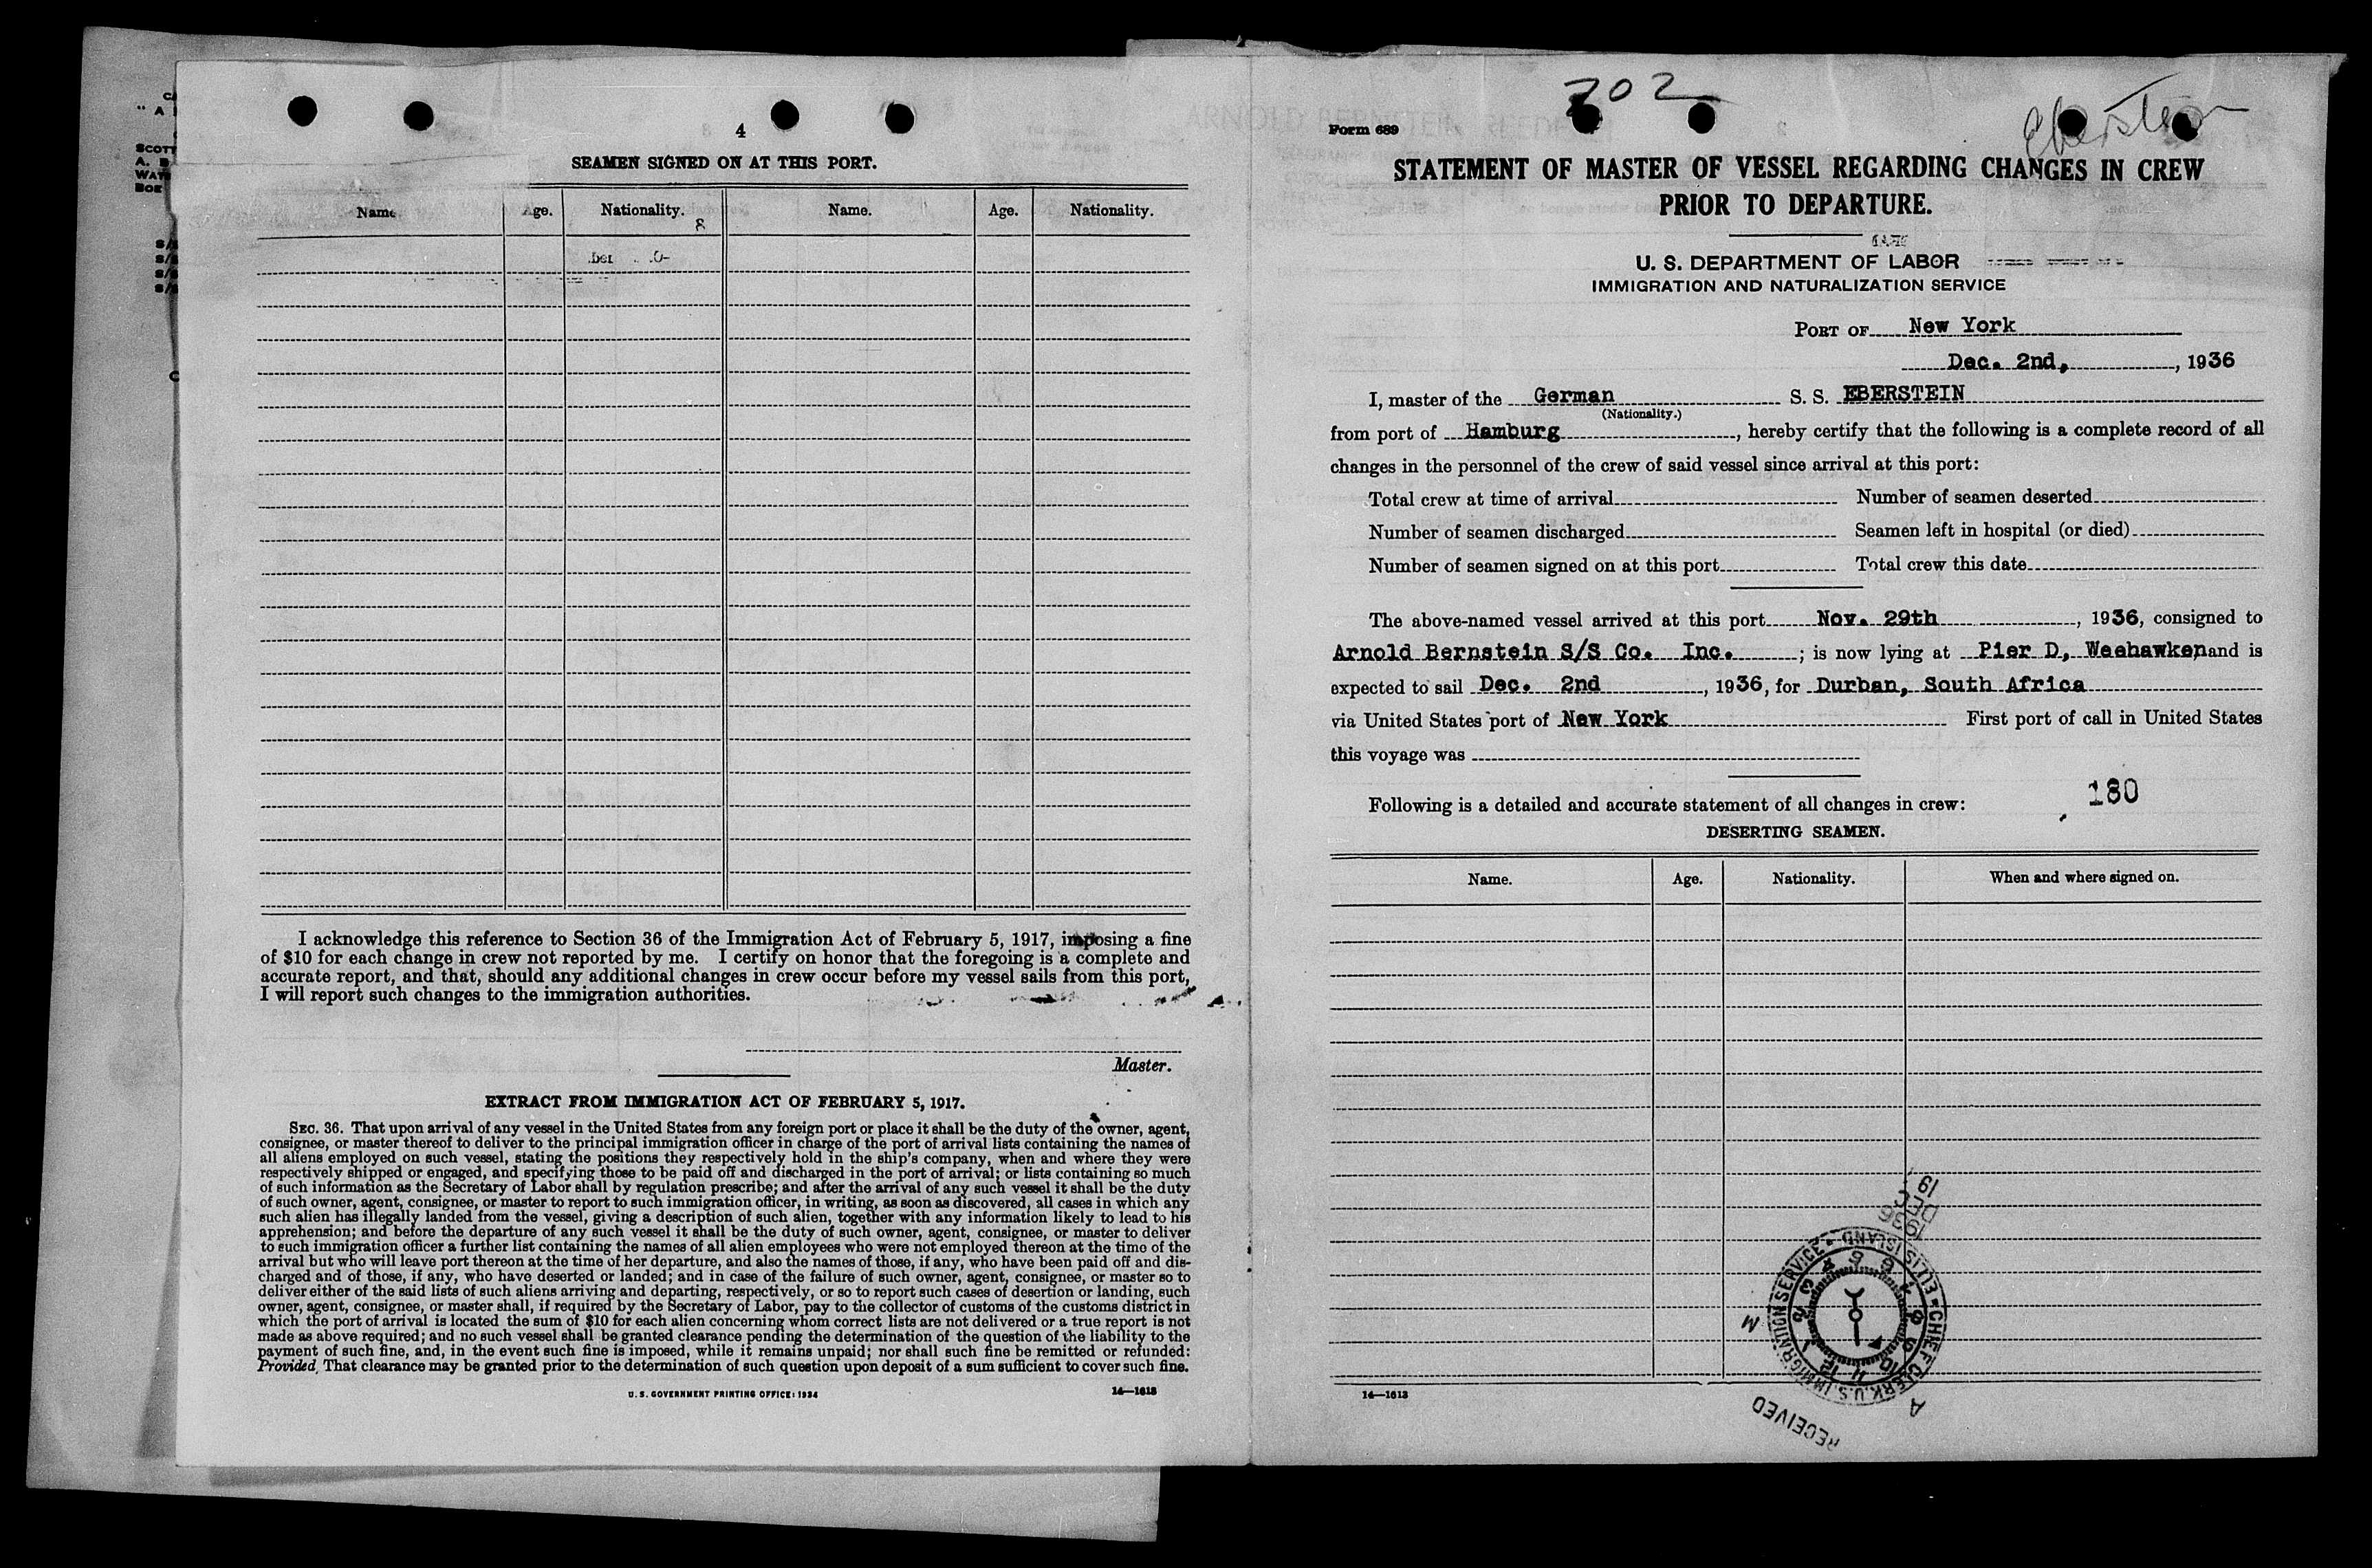 4
SEAMEN SIGNED ON AT THIS PORT.
Name. Age. Nationality. Name. Age. Nationality.
8
I acknowledge this reference to Section 36 of the Immigration Act of February 5, 1917, imposing a fine
of $10 for each change in crew not reported by me. I certify on honor that the foregoing is a complete and
accurate report, and that, should any additional changes in crew occur before my vessel sails from this port,
I will report such changes to the immigration authorities.
Master.
EXTRACT FROM IMMIGRATION ACT OF FEBRUARY 5, 1917.
SEC. 36. That upon arrival of any vessel in the United States from any foreign port or place it shall be the duty of the owner, agent,
consignee, or master thereof to deliver to the principal immigration officer in charge of the port of arrival lists containing the names of
all aliens employed on such vessel, stating the positions they respectively hold in the ship's company, when and where they were
respectively shipped or engaged, and specifying those to be paid off and discharged in the port of arrival; or lists containing so much
of such information as the Secretary of Labor shall by regulation prescribe; and after the arrival of any such vessel it shall be the duty
of such owner, agent, consignee, or master to report to such immigration officer, in writing, as soon as discovered, all cases in which any
such alien has illegally landed from the vessel, giving a description of such alien, together with any information likely to lead to his
apprehension; and before the departure of any such vessel it shall be the duty of such owner, agent, consignee, or master to deliver
to such immigration officer a further list containing the names of all alien employees who were not employed thereon at the time of the
arrival but who will leave port thereon at the time of her departure, and also the names of those, if any, who have been paid off and dis-
charged and of those, if any, who have deserted or landed; and in case of the failure of such owner, agent, consignee, or master so to
deliver either of the said lists of such aliens arriving and departing, respectively, or so to report such cases of desertion or landing, such
owner, agent, consignee, or master shall, if required by the Secretary of Labor, pay to the collector of customs of the customs district in
which the port of arrival is located the sum of $10 for each alien concerning whom correct lists are not delivered or a true report is not
made as above required; and no such vessel shall be granted clearance pending the determination of the question of the liability to the
payment of such fine, and, in the event such fine is imposed, while it remains unpaid; nor shall such fine be remitted or refunded:
Provided, That clearance may be granted prior to the determination of such question upon deposit of a sum sufficient to cover such fine.
U. S. GOVERNMENT PRINTING OFFICE: 1934 14—1613
702
Eberstein
Form 689
STATEMENT OF MASTER OF VESSEL REGARDING CHANGES IN CREW
PRIOR TO DEPARTURE.
U. S. DEPARTMENT OF LABOR
IMMIGRATION AND NATURALIZATION SERVICE
PORT OF New York
Dec. 2nd, , 1936
I, master of the German S. S. EBERSTEIN
(Nationality.)
from port of Hamburg , hereby certify that the following is a complete record of all
changes in the personnel of the crew of said vessel since arrival at this port:
Total crew at time of arrival Number of seamen deserted
Number of seamen discharged Seamen left in hospital (or died)
Number of seamen signed on at this port Total crew this date
The above-named vessel arrived at this port Nov. 29th , 1936, consigned to
Arnold Bernstein S/S Co. Inc. ; is now lying at Pier D, Weehawken, and is
expected to sail Dec. 2nd , 1936, for Durban, South Africa
via United States port of New York First port of call in United States
this voyage was
180
Following is a detailed and accurate statement of all changes in crew:
DESERTING SEAMEN.
Name. Age. Nationality. When and where signed on.
1936 DEC
CHIEF CLERK U.S. IMMIGRATION SERVICE • ELLIS ISLAND
1 2 3 4 5 6 7 8 9 10 11 12
M
A
RECEIVED
14—1613